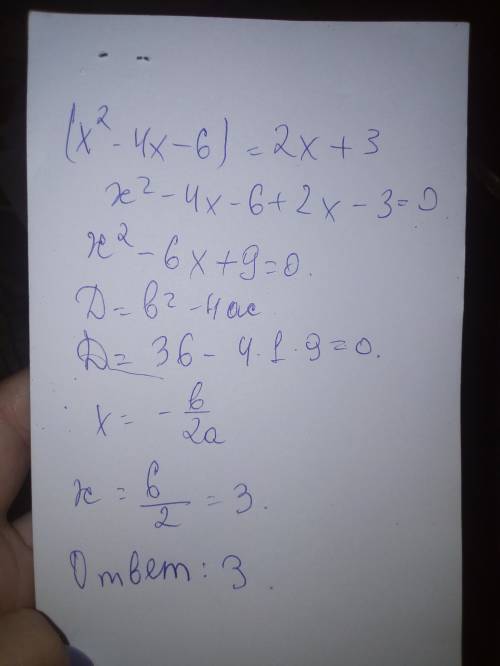 (x² - 4x - 6) = 2x + 3
x² - 4x - 6 + 2x - 3 = 0
x² - 6x + 9 = 0.
Д = в² - 4ас
Д = 36 - 4 · 1 · 9 = 0.
x = - в/2а
x = 6/2 = 3.
Ответ: 3.